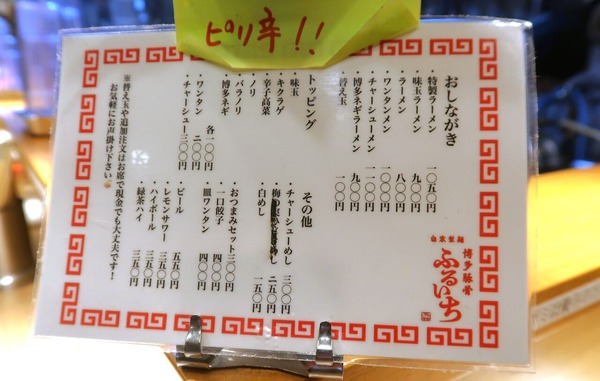 ピリ辛!!
おしながき
・特製ラーメン 一〇五〇円
・味玉ラーメン 九〇〇円
・ラーメン 八〇〇円
・ワンタンメン 九〇〇円
・チャーシューメン 一一〇〇円
・博多ネギラーメン 九〇〇円
・替え玉 一〇〇円
トッピング
・味玉
・キクラゲ
・辛子高菜
・ノリ
・バラノリ
・博多ネギ 各一〇〇円
・ワンタン 二〇〇円
・チャーシュー 三〇〇円
その他
・チャーシューめし 三〇〇円
・梅 めし 二五〇円
・白めし 一五〇円
・おつまみセット三〇〇円
・一口餃子 四〇〇円
・皿ワンタン 四〇〇円
・ビール 五五〇円
・レモンサワー 三五〇円
・ハイボール 三五〇円
・緑茶ハイ 三五〇円
※替え玉や追加注文はお席で現金でも大丈夫です！
お気軽にお声掛け下さい
自家製麺
博多豚骨
ふるいち